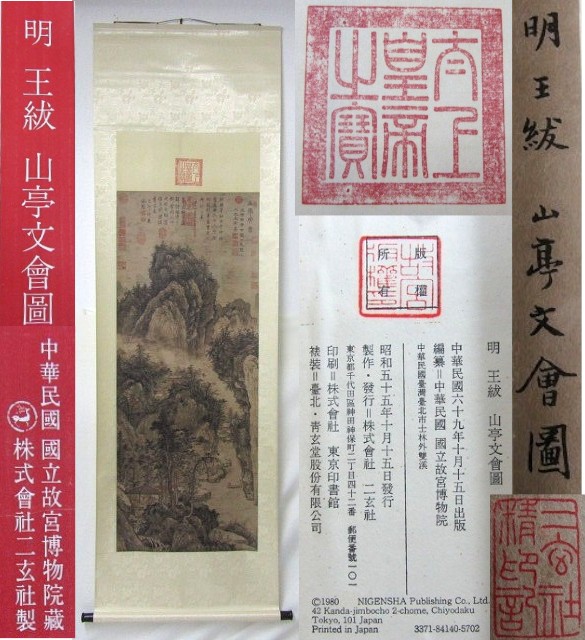 明 王紱 山亭文會圖
中華民國 國立故宮博物院藏
株式會社二玄社製
太上
皇帝
之寶
版權
所有
明 王紱 山亭文會圖
中華民國六十九年十月十五日出版
編纂=中華民國 國立故宮博物院
中華民國臺灣臺北市士林外雙溪
昭和五十五年十月十五日發行
製作・發行=株式會社 二玄社
東京都千代田區神田神保町二丁目四十二番 郵便番號一〇一
印刷=株式會社 東京印書館
裱裝=臺北・青玄堂股份有限公司
©1980 NIGENSHA Publishing Co., Ltd.
42 Kanda-jimbocho 2-chome, Chiyodaku
Tokyo, 101 Japan
Printed in Japan 3371-84140-5702
明 王紱 山亭文會圖
二玄社
精印記